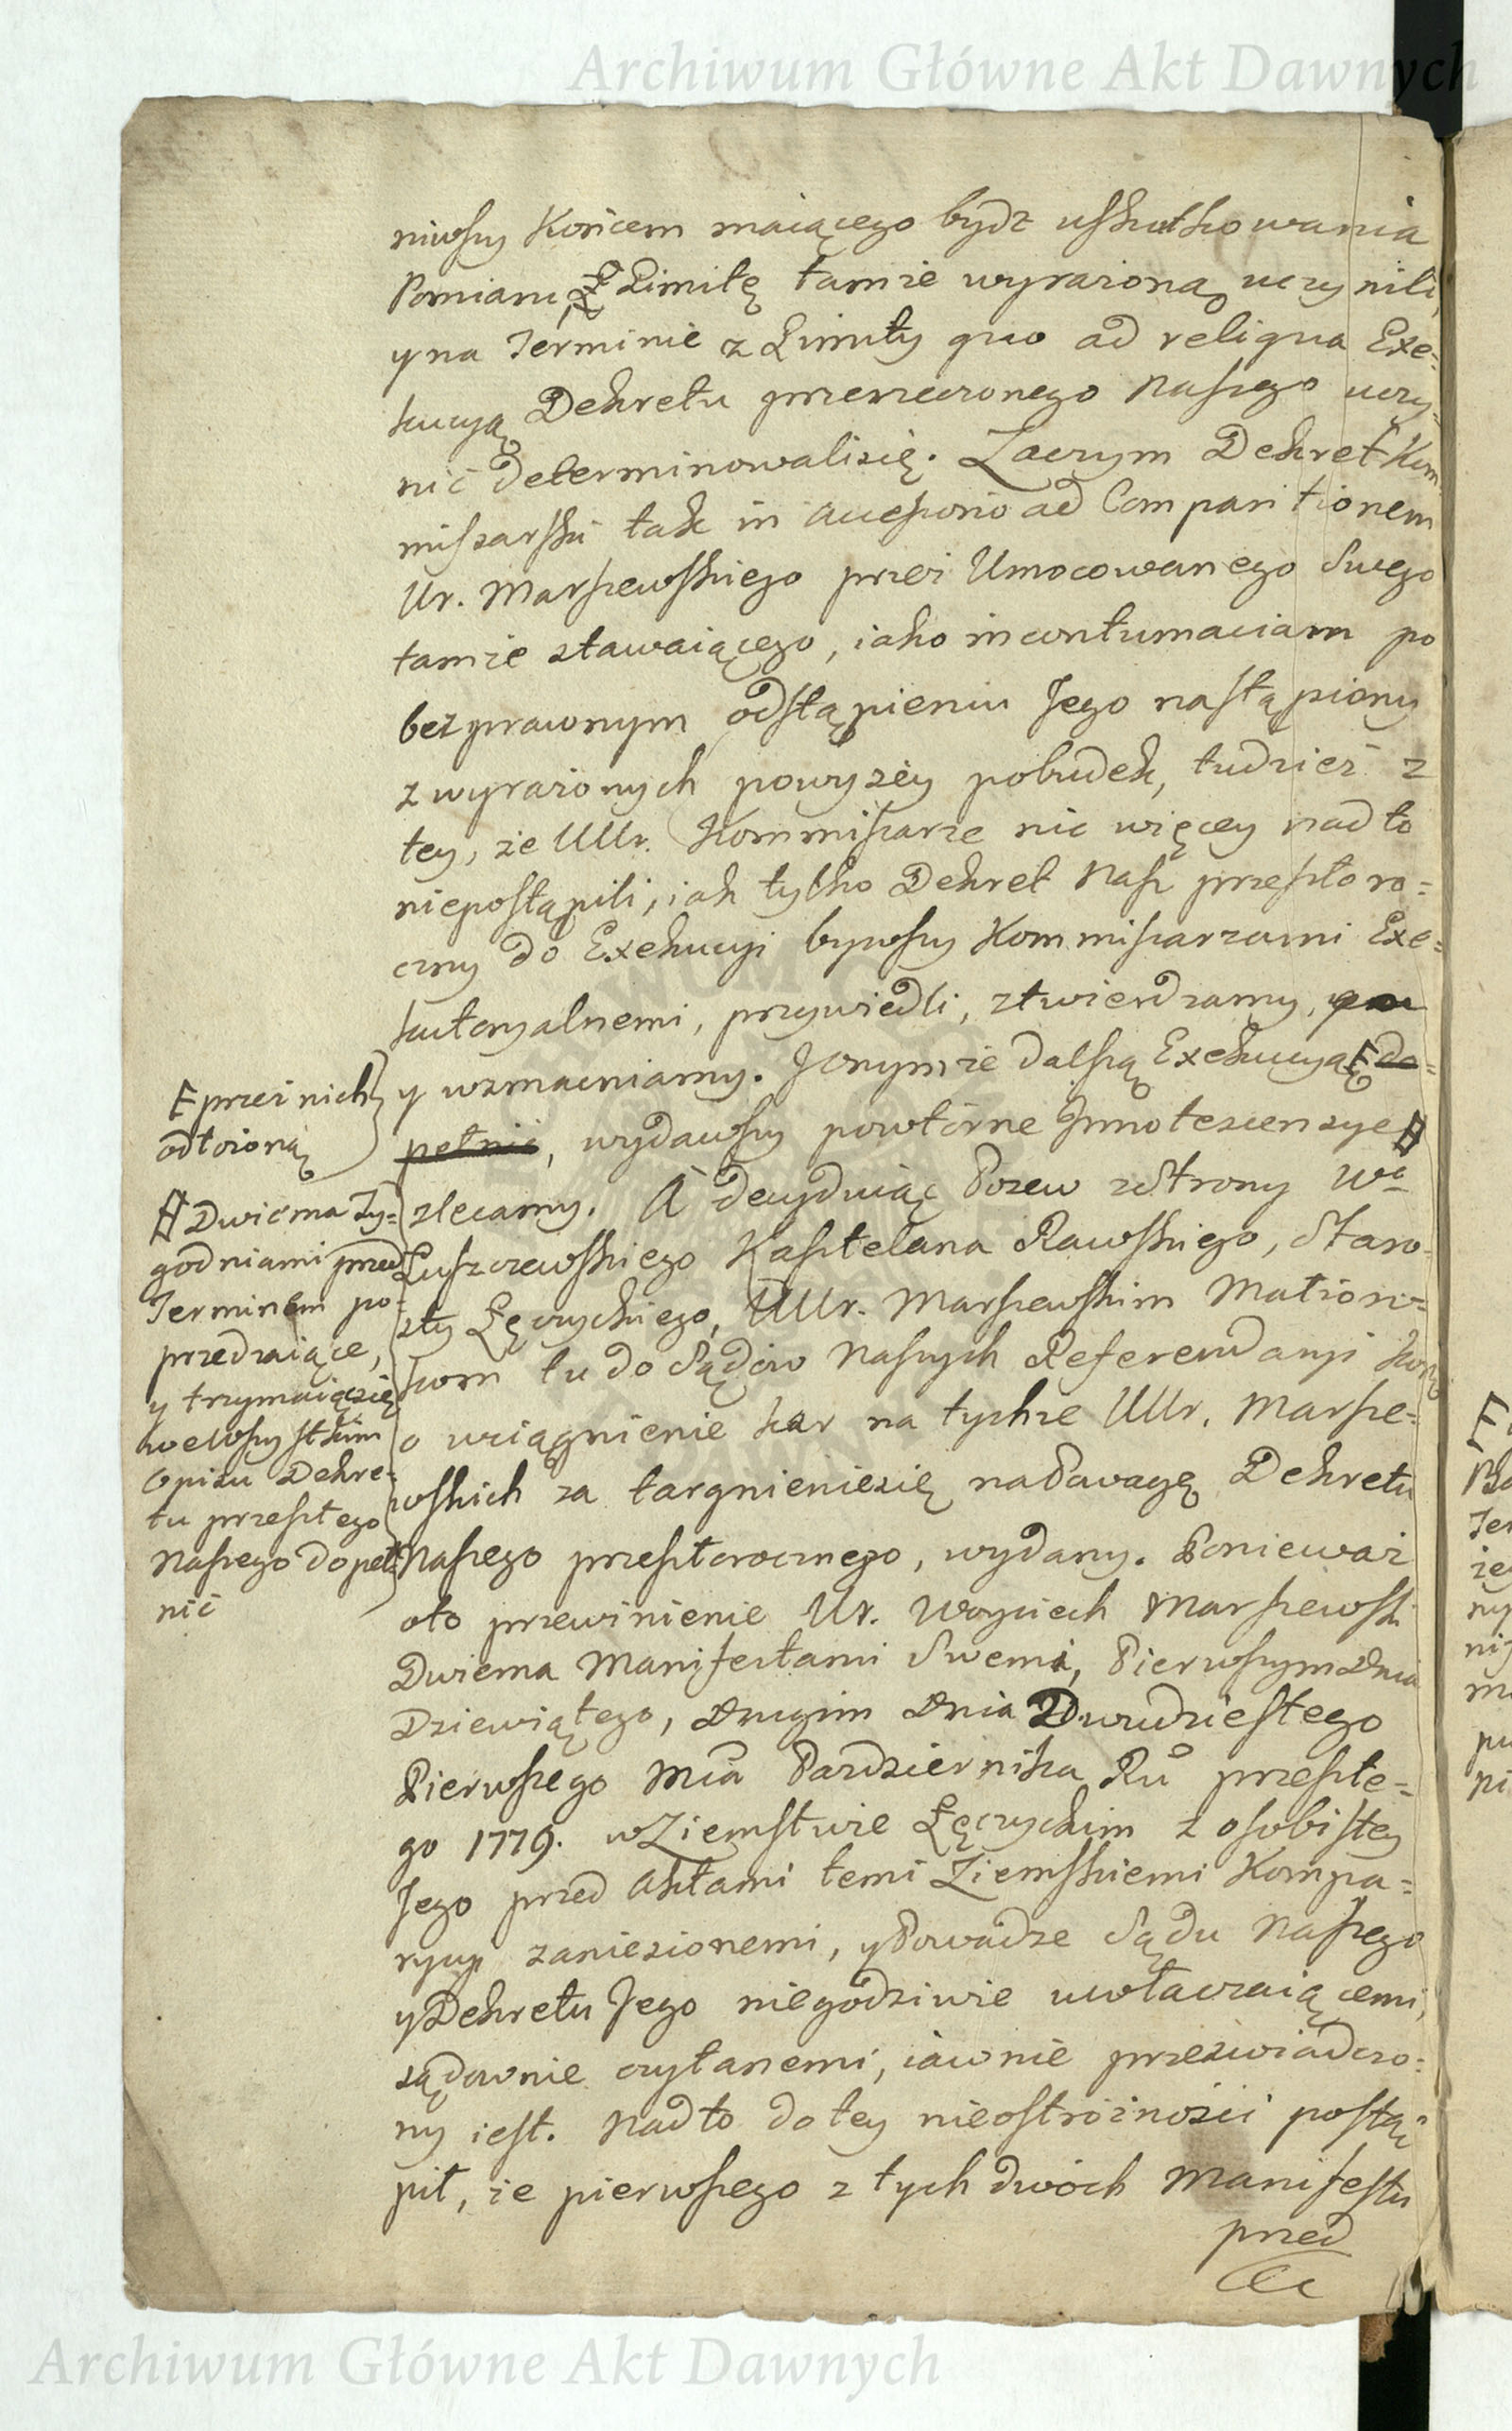 Archiwum Główne Akt Dawnych
niwszy Końcem maiącego bydź uskutkowania
Pomiaru, Limitę tamże wyrażoną uczynili,
y na Terminie z Limity quo ad reliqua Exe=
kucyą Dekretu przerzeczonego Naszego uczy=
nić determinowali się. Zaczym Dekret Kom=
missarski tak in accessorio ad Comparitionem
Ur. Marszewskiego przez Umocowanego Swego
tamże stawaiącego, iako in contumaciam po
bezprawnym odstąpieniu Jego nastąpiony
z wyrażonych powyżey pobudek, tudzież z
tey, że UUr. Kommissarze nic więcey nad to
niepostąpili, iak tylko Dekret Nasz przeszłoro=
czny do Exekucyi bywszy Kommissarzami Exe=
kutoryalnemi, przywiedli, ztwierdzamy,
y wzmacniamy. Jonymże dalszą Exekucyą do=
pełnić, wydawszy powtórne Jnnotescencye
zlecamy. A decyduiąc Pozew zStrony Wo
Luszczewskiego Kasztelana Rawskiego, Staro=
sty Łęczyckiego, UUr. Marszewskim Małżon=
kom tu do Sądów Naszych Referendaryi Kony
o uciągnienie kar na tychże UUr. Marsze=
wskich za targnieniesię na Powagę Dekretu
Naszego przeszłorocznego, wydany. Ponieważ
oto przewinienie Ur. Woyciech Marszewski
Dwiema Manifestami Swemi, Pierwszym Dnia
Dziewiątego, Drugim Dnia Dwudziestego
Pierwszego Mca Pazdziernika Ru przeszłe=
go 1779. w Ziemstwie Łęczyckim z osobistey
Jego przed Aktami temi Ziemskiemi Kompa=
rycyi zaniesionemi, y Powadze Sądu Naszego
y Dekretu Jego niegodziwie uwłaczaiącemi,
sądownie czytanemi, iawnie przeświadczo=
ny iest. Nad to do tey nieostrożności postą
pił, że pierwszego z tych dwóch Manifestu
przed
przez nich
odłożoną
Dwiema Ty=
godniami przed
Terminem po=
przedzaiące,
y trzymaiącsię
we wszystkim
Opisu Dekre=
tu przeszłego
Naszego dopeł=
nić
Archiwum Główne Akt Dawnych